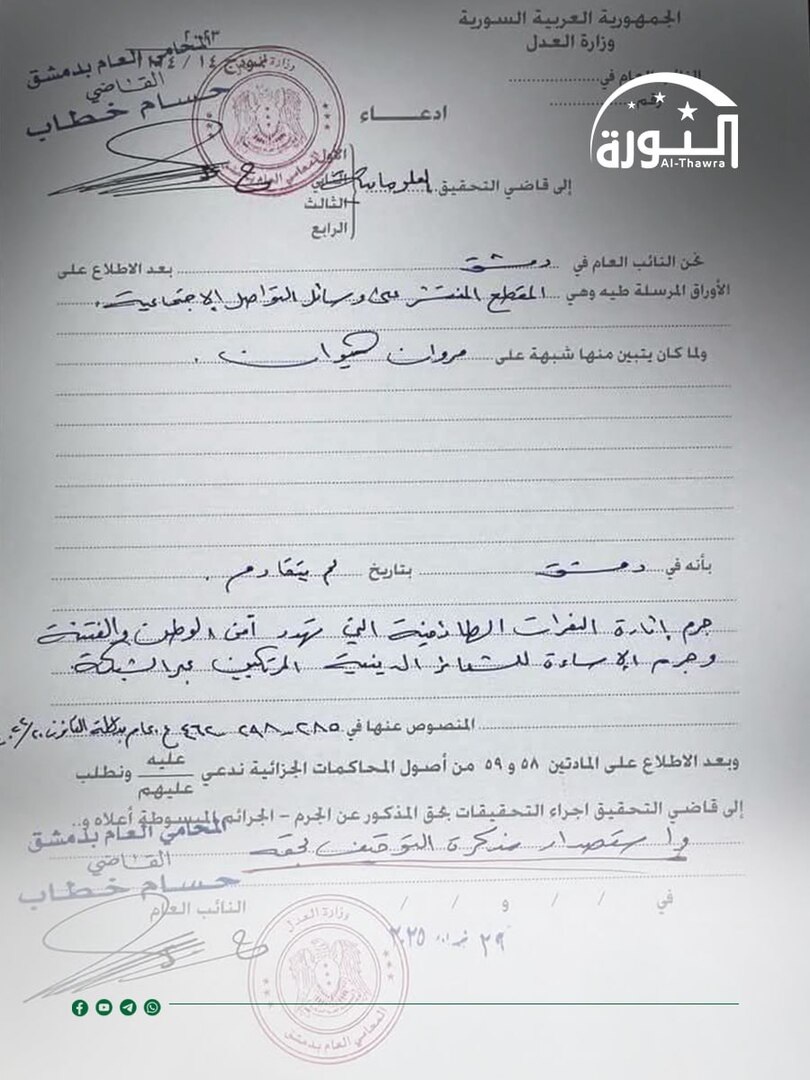 الجمهورية العربية السورية
وزارة العدل
النائب العام في
رقم
الثورة
Al-Thawra
المحامي العام بدمشق
القاضي
حسام خطاب
وزارة العدل
المحامي العام بدمشق
ادعـــاء
الأول
إلى قاضي التحقيق
الثالث
الرابع
نحن النائب العام في دمشق بعد الاطلاع على
الأوراق المرسلة طيه وهي المقطع المنتشر على وسائل التواصل الاجتماعية.
ولما كان يتبين منها شبهة على مروان كيوان.
بأنه في دمشق بتاريخ لم يتقادم.
جرم إثارة النعرات الطائفية التي تهدد أمن الوطن والفتنة
وجرم الإساءة للشعائر الدينية المرتكبين عبر الشبكة.
المنصوص عنها في ٢٨٥ - ٢٩٨ - ٤٦٢ ع. عام بدلالة القانون ٢٠/
وبعد الاطلاع على المادتين ٥٨ و ٥٩ من أصول المحاكمات الجزائية ندعي عليه عليهم ونطلب
إلى قاضي التحقيق اجراء التحقيقات بحق المذكور عن الجرم - الجرائم المبسوطة أعلاه و..
واستصدار مذكرة التوقيف بحقه
المحامي العام بدمشق
القاضي
حسام خطاب
النائب العام
في / / و / /
٢٩ ٢٠٢٥
وزارة العدل
المحامي العام بدمشق